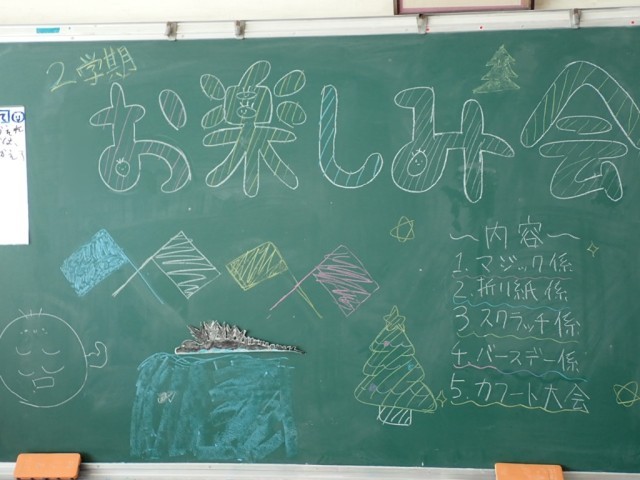 2学期
お楽しみ会
〜内容〜
1. マジック係
2. 折り紙係
3. スクラッチ係
4. バースデー係
5. カフート大会